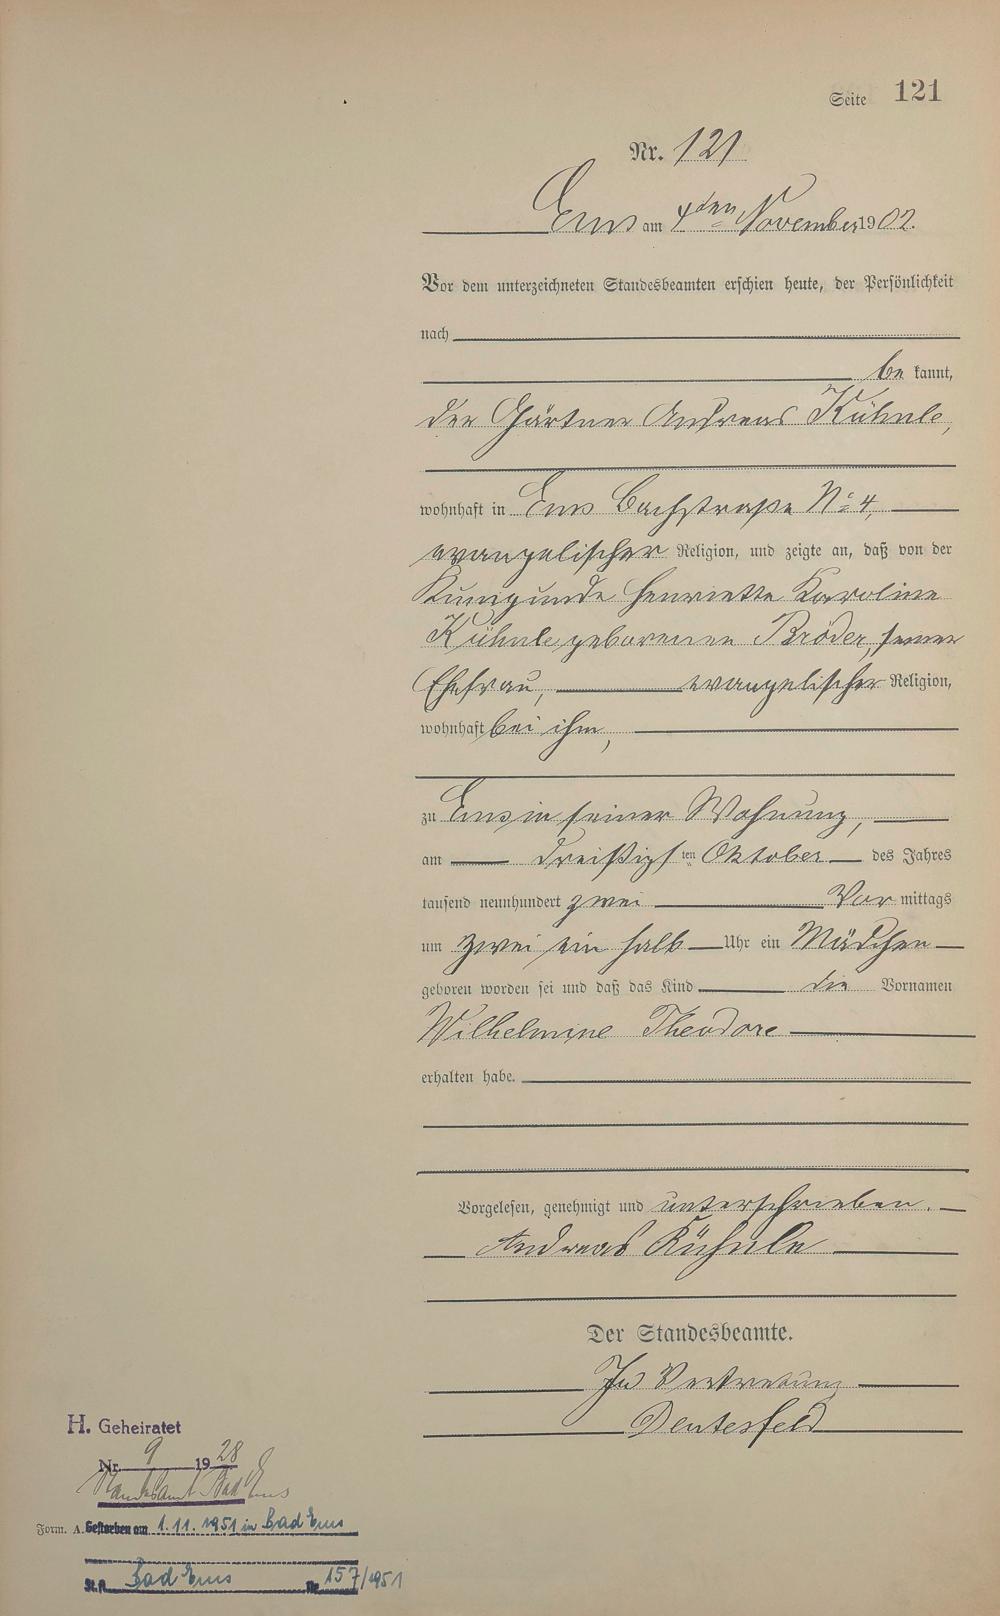 Seite 121
Nr. 121
Ems am 4ten November 1902.
Vor dem unterzeichneten Standesbeamten erschien heute, der Persönlichkeit
nach
be kannt,
der Gärtner Andreas Kühnle,
wohnhaft in Ems Bachstraße No 4,
evangelischer Religion, und zeigte an, daß von der
Kunigunde Henriette Karoline
Kühnle geborenen Bröder, seiner
Ehefrau, evangelischer Religion,
wohnhaft bei ihm,
zu Ems in seiner Wohnung,
am dreißigsten Oktober des Jahres
tausend neunhundert zwei Vor mittags
um zwei ein halb Uhr ein Mädchen
geboren worden sei und daß das Kind die Vornamen
Wilhelmine Theodore
erhalten habe.
Vorgelesen, genehmigt und unterschrieben.
Andreas Kühnle
Der Standesbeamte.
In Vertretung
H. Geheiratet
Nr. 9 1928
Standesamt Bad Ems
Form. A. Gestorben am 1.11.1951 in Bad Ems
St.A. Bad Ems Nr. 157/1951